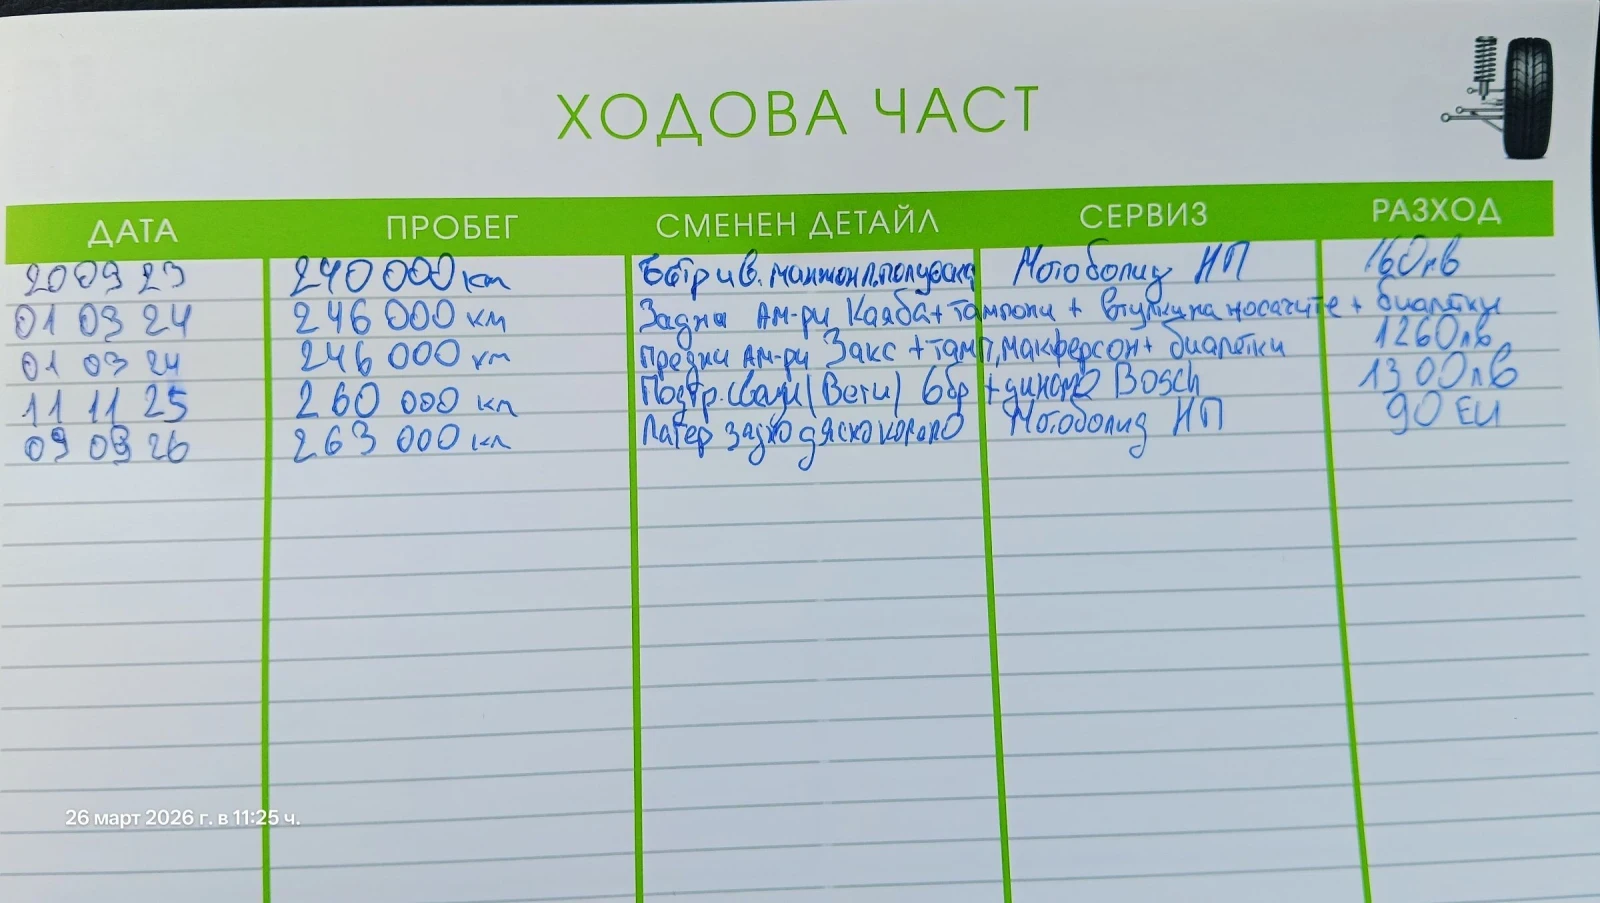 ХОДОВА ЧАСТ
ДАТА ПРОБЕГ СМЕНЕН ДЕТАЙЛ СЕРВИЗ РАЗХОД
20 09 23 240 000 км Мотоболид НП 160лв
01 03 24 246 000 км Задни Ам-ри Каяба+тампони + втулки на носачите + биалетки
01 03 24 246 000 км Предни Ам-ри Закс +тамп,макферсон+ биалетки 1260лв
11 11 25 260 000 км Подгр.свещи(Вети) 6бр +динамо Bosch 1300лв
09 03 26 263 000 км Лагер задно дясно колело Мотоболид НП 90 EU
26 март 2026 г. в 11:25 ч.